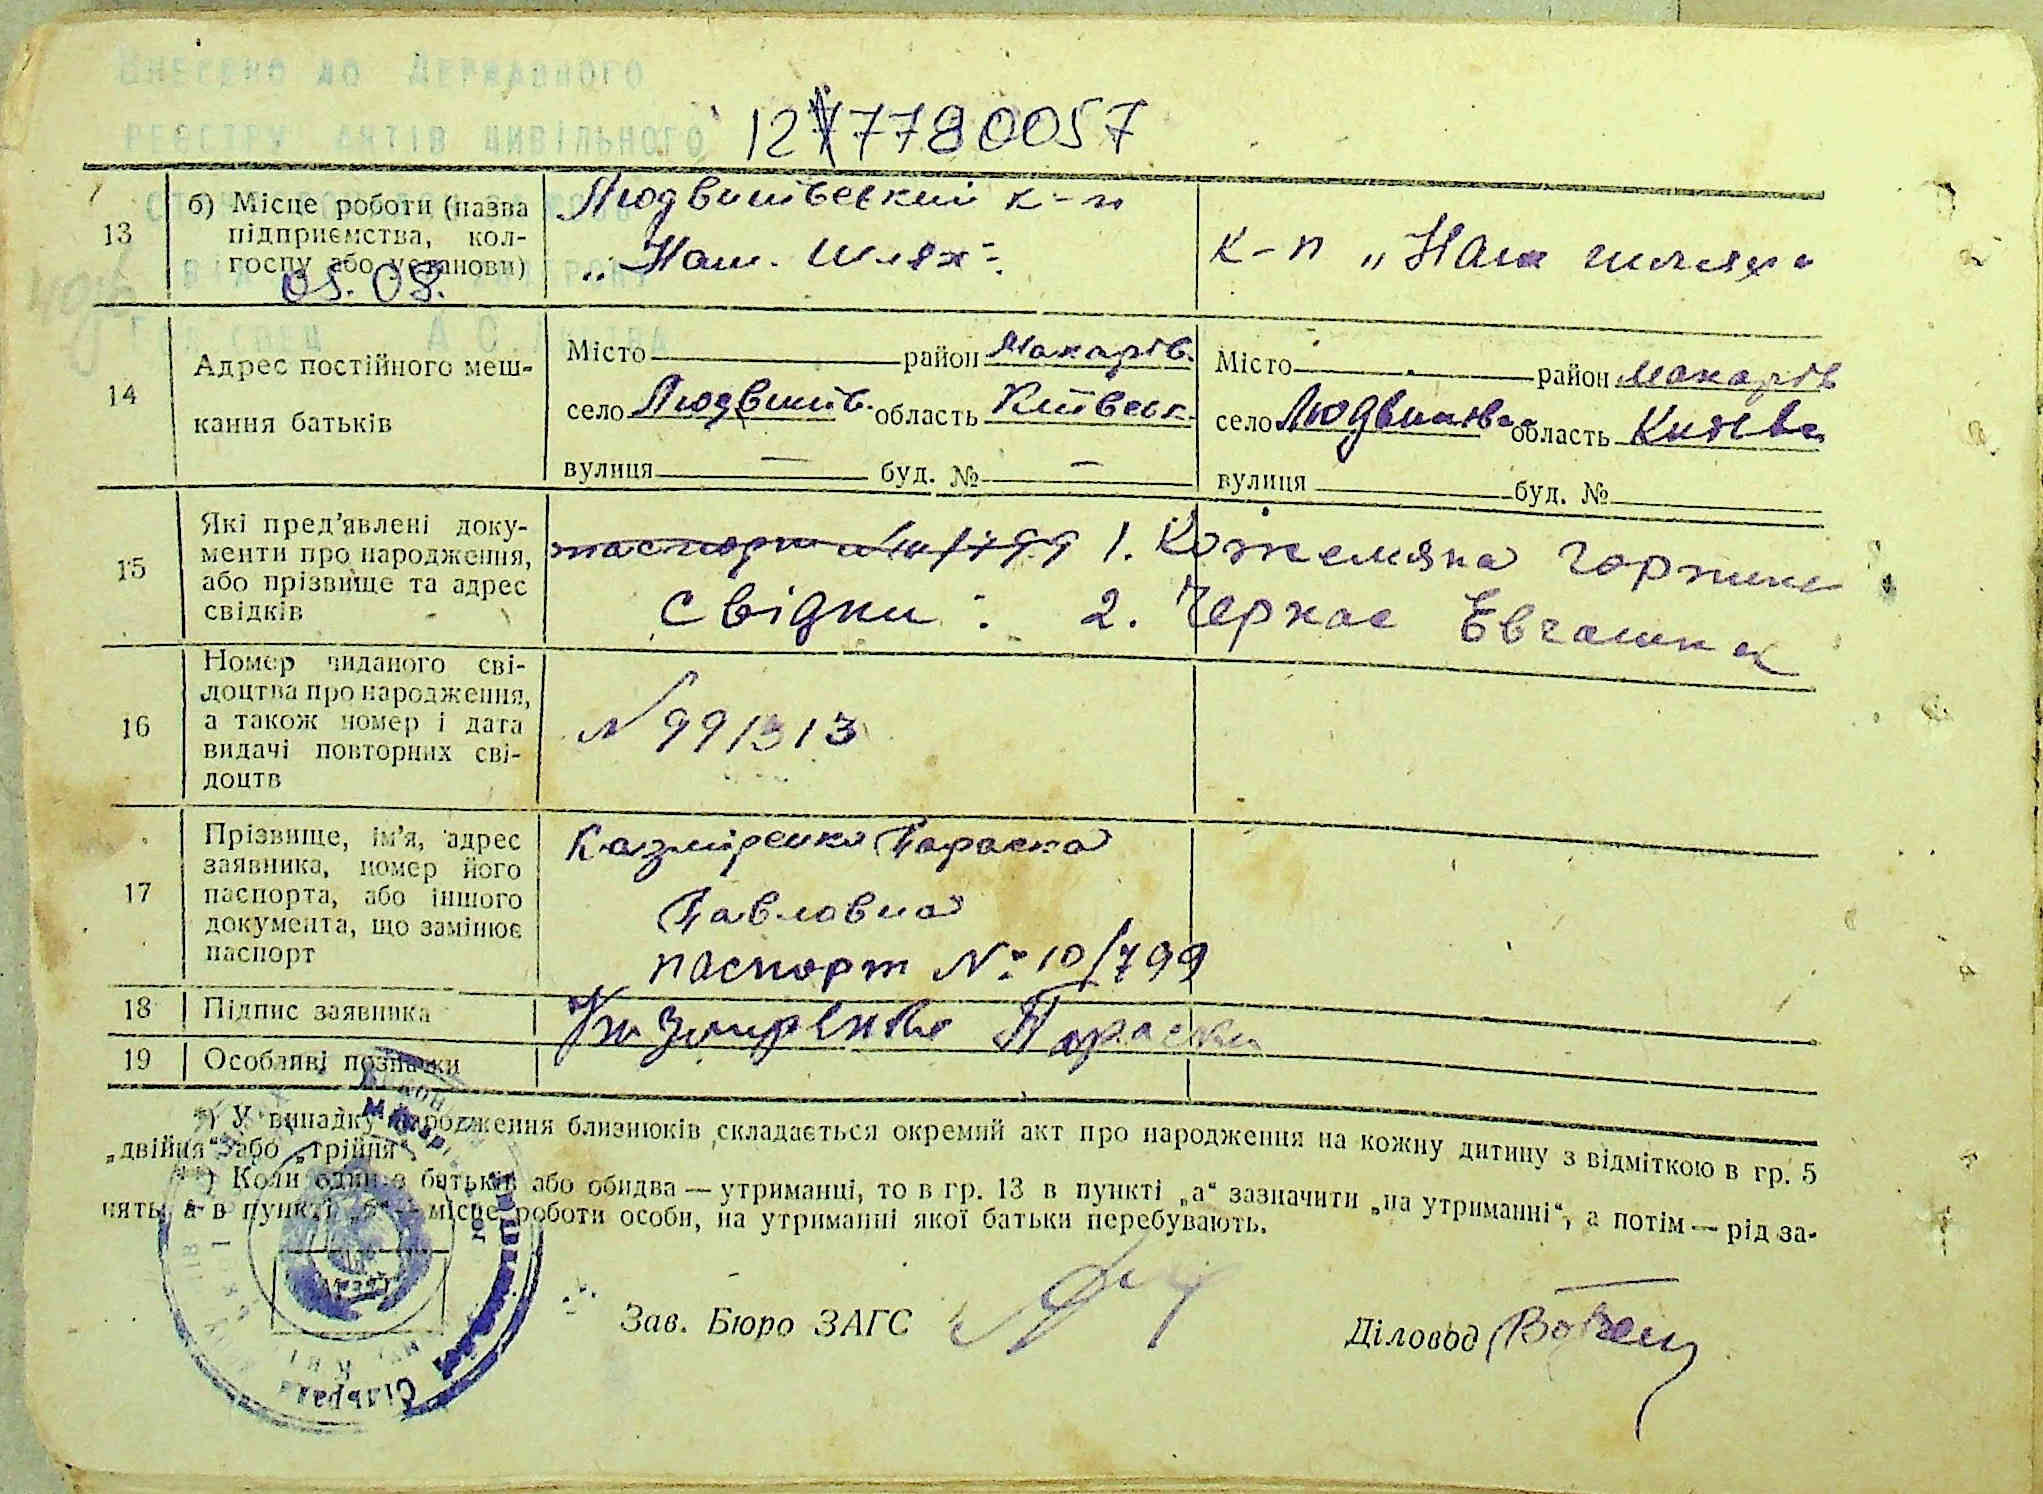 Внесено до Державного
реєстру актів цивільного
127780057
13
б) Місце роботи (назва
підприємства, кол-
госпу або установи)
05.08.
Людвинівський к-п
„Наш. Шлях".
к-п „Наш шлях"
14
Адрес постійного меш-
кання батьків
Місто район Макарів.
село Людвинів. область Київськ.
вулиця — буд. № —
Місто район Макарів
село Людвинівка область Київська
вулиця буд. №
15
Які пред'явлені доку-
менти про народження,
або прізвище та адрес
свідків
паспорт № 10/799 1. Кожемяка Горпина
свідки: 2. Черкас Евгения
16
Номер виданого сві-
доцтва про народження,
а також номер і дата
видачі повторних сві-
доцтв
№ 991313
17
Прізвище, ім'я, адрес
заявника, номер його
паспорта, або іншого
документа, що замінює
паспорт
Казміренко Параска
Павловна
паспорт № 10/799
18
Підпис заявника
Казміренко Параска
19
Особливі позначки
*) У випадку народження близнюків складається окремий акт про народження на кожну дитину з відміткою в гр. 5
„двійня" або „трійня".
**) Коли один з батьків або обидва — утриманці, то в гр. 13 в пункті „а" зазначити „на утриманні", а потім — рід за-
нять, а в пункті „б" — місце роботи особи, на утриманні якої батьки перебувають.
Зав. Бюро ЗАГС
Діловод